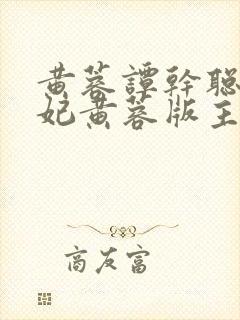 黄蓉譚幹聪
妃黄蓉版主
商友富